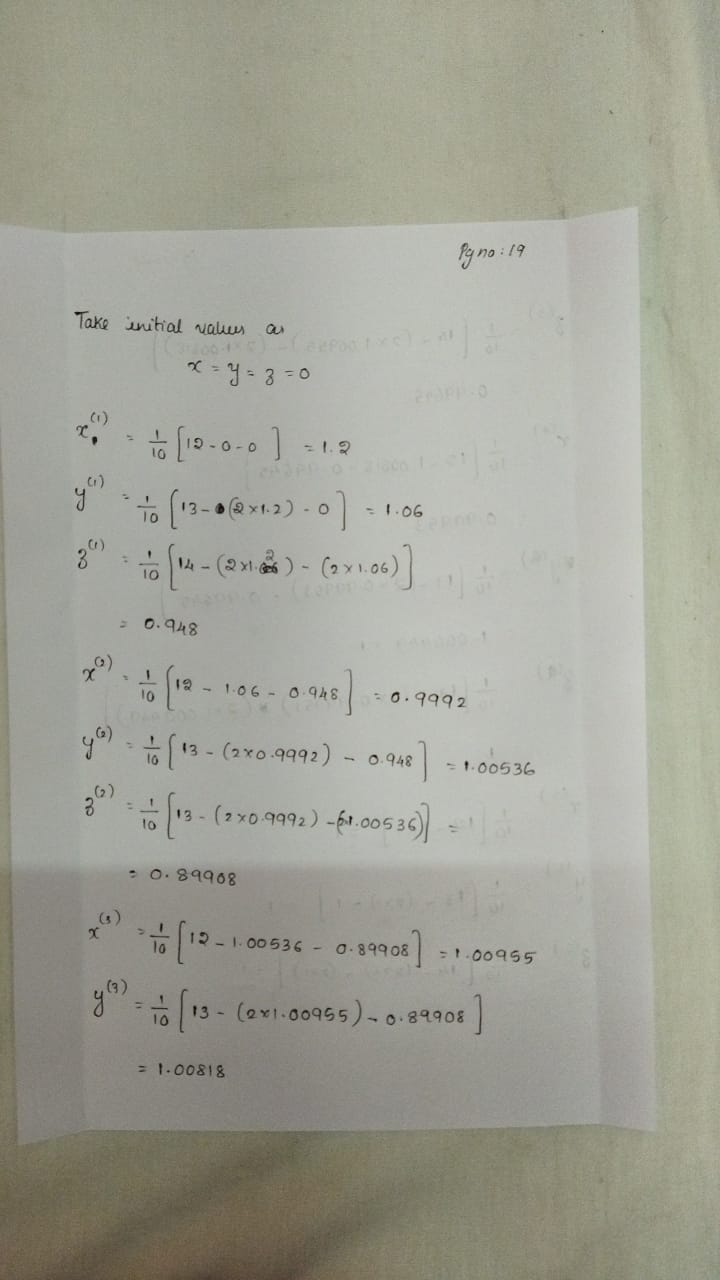 Pg no : 19
Take initial values as
x = y = z = 0
x^(1) = 1/10 [12 - 0 - 0] = 1.2
y^(1) = 1/10 [13 - (2×1.2) - 0] = 1.06
z^(1) = 1/10 [14 - (2×1.2) - (2×1.06)]
= 0.948
x^(2) = 1/10 [12 - 1.06 - 0.948] = 0.9992
y^(2) = 1/10 [13 - (2×0.9992) - 0.948] = 1.00536
z^(2) = 1/10 [13 - (2×0.9992) - (2×1.00536)] =
= 0.89908
x^(3) = 1/10 [12 - 1.00536 - 0.89908] = 1.00955
y^(3) = 1/10 [13 - (2×1.00955) - 0.89908]
= 1.00818